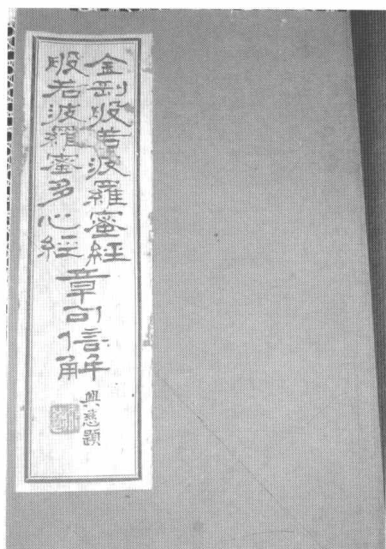 金剛般若波羅蜜經
般若波羅蜜多心經
章句信解
興慈題